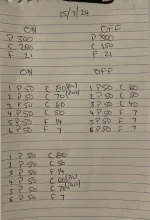 15/7/24
ON OFF
P 300 P 300
C 260 C 150
F 21 F 21
ON OFF
1 P 50 C 80 1 P 50 C 60
2 P 50 C 70 2 P 50 C 50
3 P 50 C 60 3 P 50 C 40
4 P 50 C 50 4 P 50 F 7
5 P 50 F 14 5 P 50 F 7
6 P 50 F 7 6 P 50 F 7
1 P 50 C 80
2 P 50 C 50
3 P 50 F 14
4 P 50 C 60
5 P 50 C 70
6 P 50 F 7